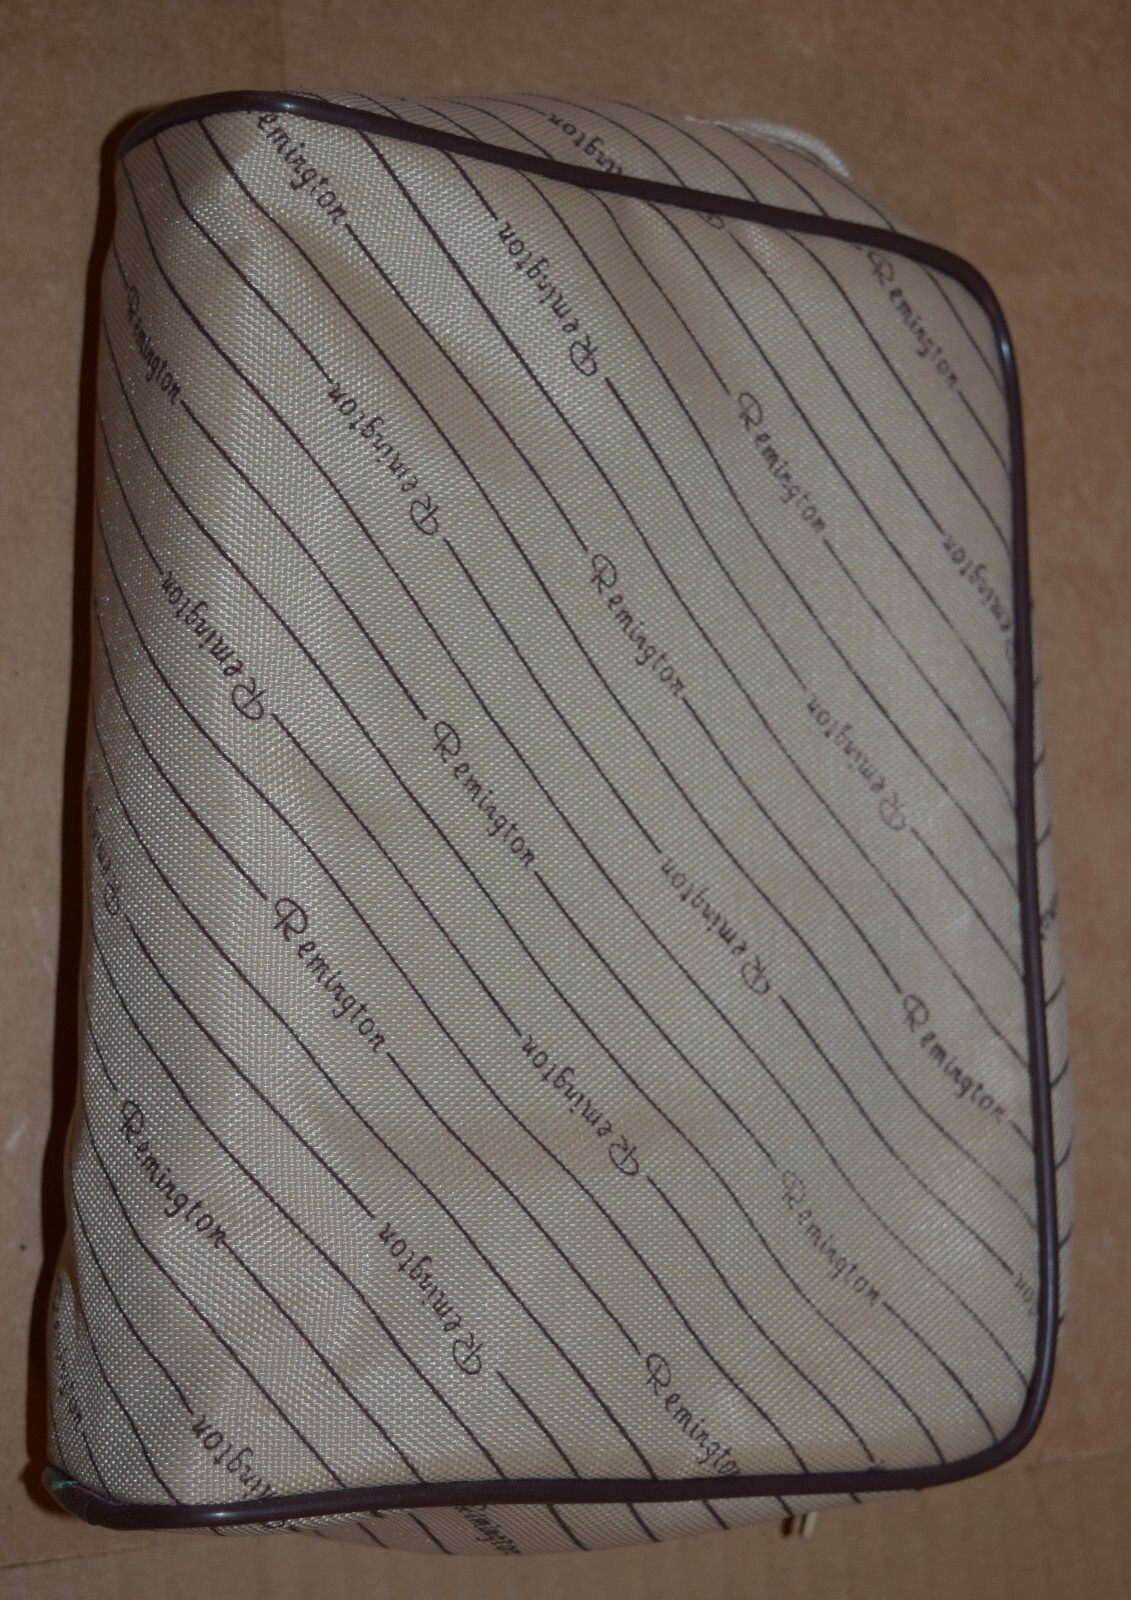 Remington
Remington
Remington
Remington
Remington
Remington
Remington
Remington
Remington
Remington
Remington
Remington
Remington
Remington
Remington
Remington
Remington
Remington
Remington